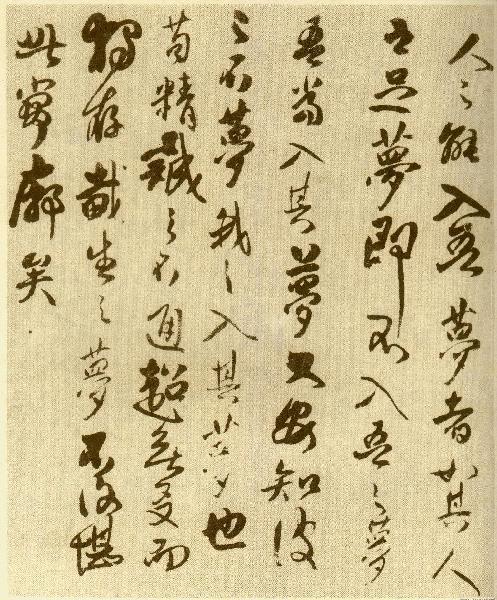 人之能入吾夢者如其人
足夢即不入吾之夢
吾當入其夢又安知彼
之不夢我之入其夢也
苟精誠之不通超無友而
獨存生之夢不堪
此寥廓矣